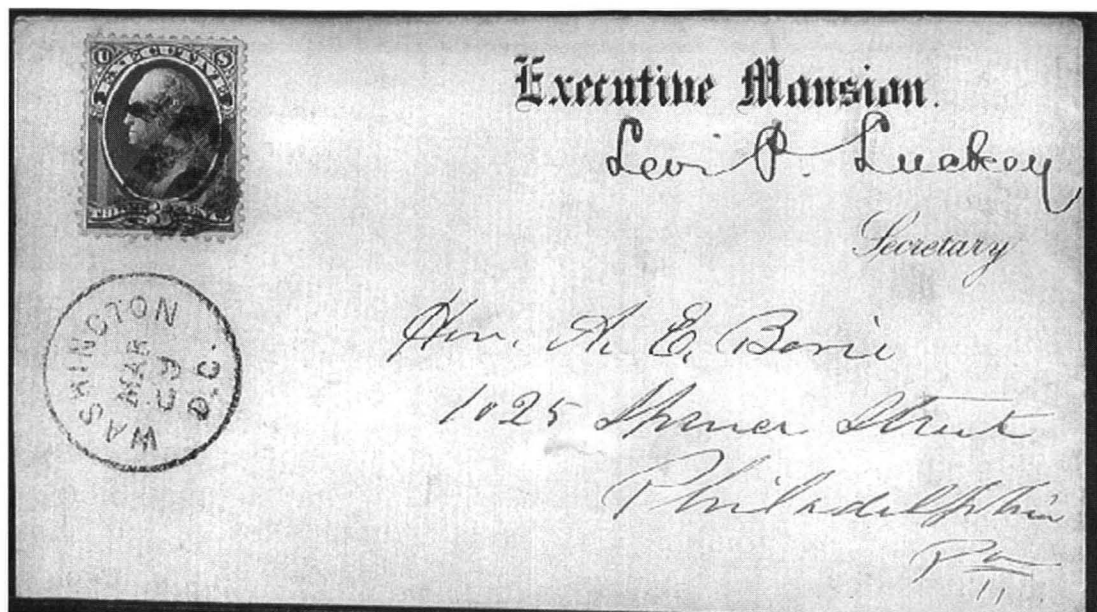 U S
EXECUTIVE
THREE CENTS
3
Executive Mansion.
Levi P. Luckey
Secretary
WASHINGTON
MAR
29
D.C.
Hon. A. E. Borie
1025 Spruce Street
Philadelphia
Pa